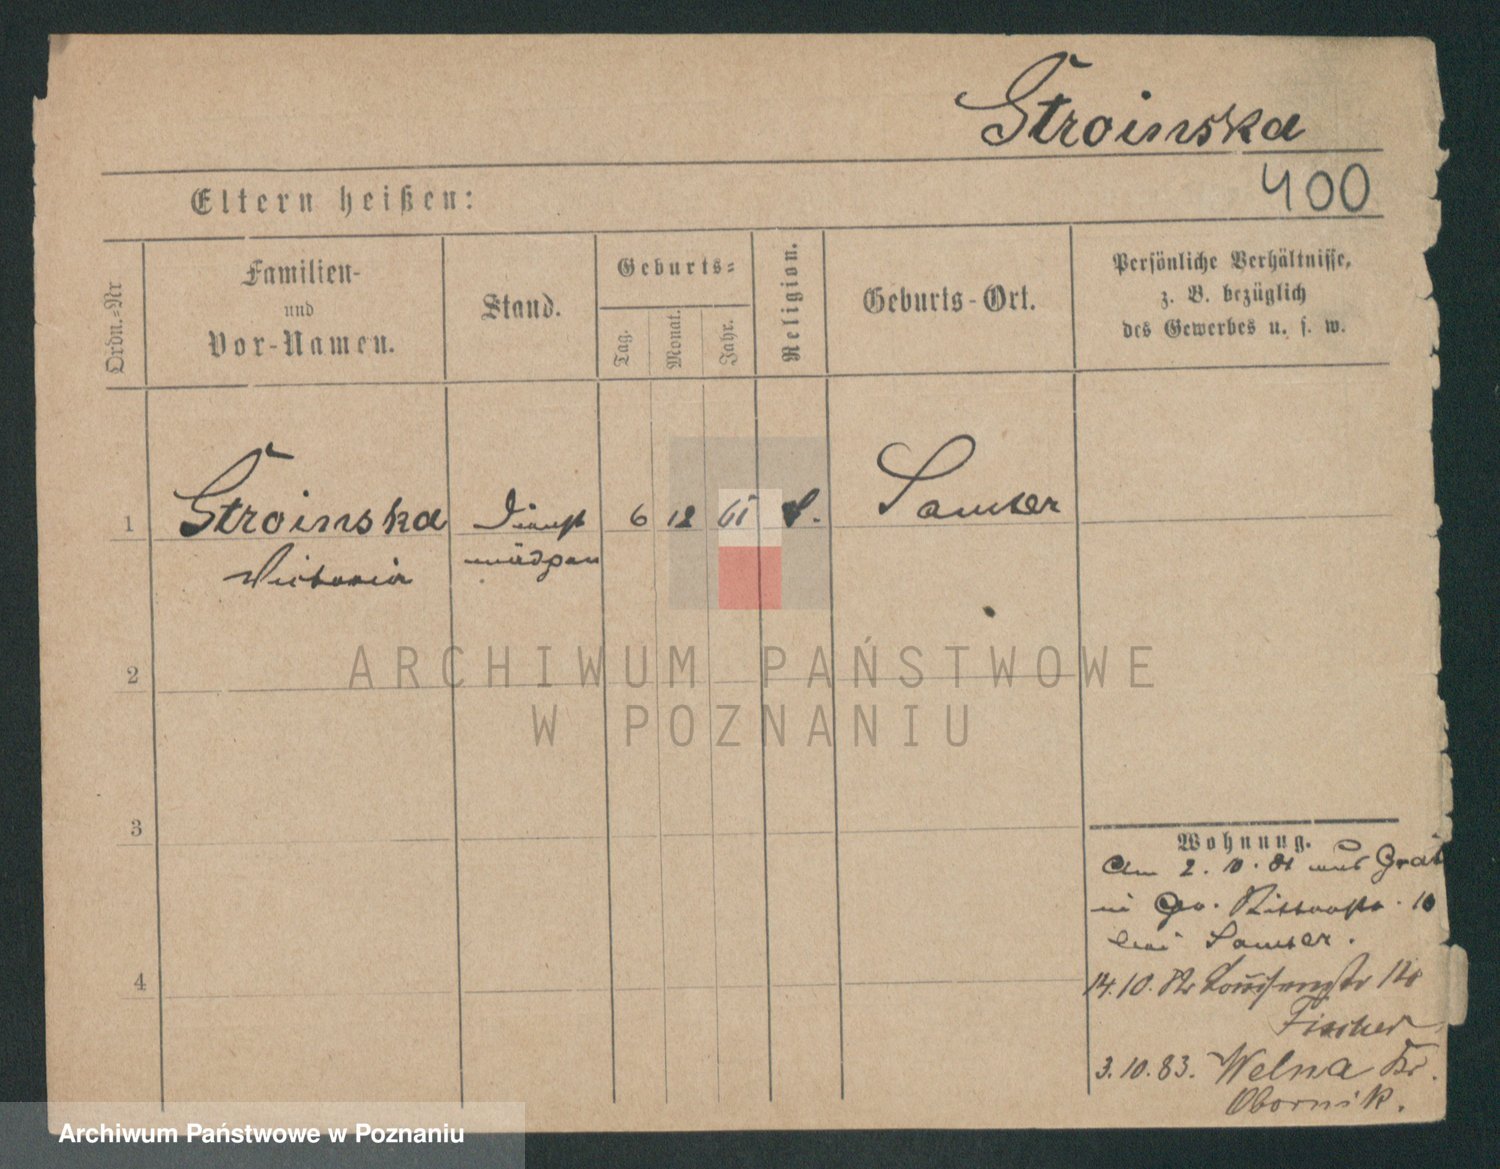 Stroinska
400
Eltern heißen:
Ordn.=Nr
Familien-
und
Vor-Namen.
Stand.
Geburts=
Tag.
Monat.
Jahr.
Religion.
Geburts-Ort.
Persönliche Verhältnisse,
z. B. bezüglich
des Gewerbes u. s. w.
1
Stroinska
Victoria
Dienst
mädchen
6
12
Samter
2
3
4
ARCHIWUM PAŃSTWOWE
W POZNANIU
Wohnung.
Am 2. 10. 81 aus
in Ritterstr. 10
bei Samter.
14.10. Louisenstr
Fischer
3.10.83. Welna Kr.
Obornik.
Archiwum Państwowe w Poznaniu